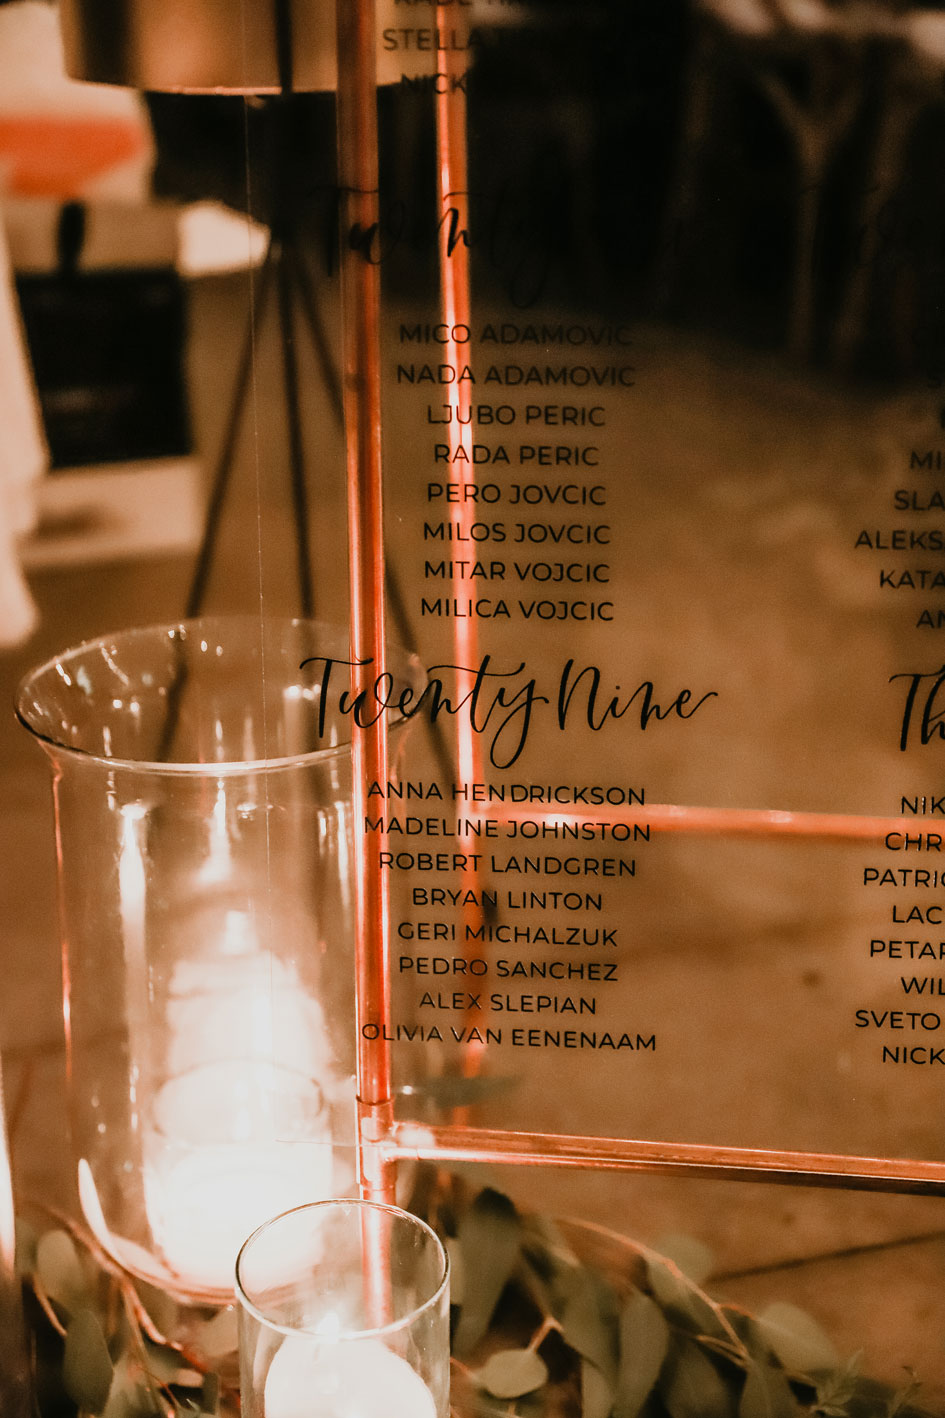 STELLA
NICK
Twenty
MICO ADAMOVIC
NADA ADAMOVIC
LJUBO PERIC
RADA PERIC
PERO JOVCIC
MILOS JOVCIC
MITAR VOJCIC
MILICA VOJCIC
Twenty Nine
ANNA HENDRICKSON
MADELINE JOHNSTON
ROBERT LANDGREN
BRYAN LINTON
GERI MICHALZUK
PEDRO SANCHEZ
ALEX SLEPIAN
OLIVIA VAN EENENAAM
MI
SLA
ALEKS
KATA
AN
Th
NIK
CHR
PATRIC
LAC
PETAR
WIL
SVETO
NICK